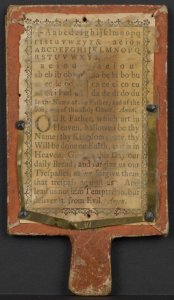 Aabcdefghijklmnopq
rſstuvwxyz & aeiou
ABCDEFGHIJKLMNOPQ
RSTUVWXYZ.
a e i o u
ab eb ib ob ub ba be bi bo bu
ac ec ic oc uc
ad ed id od ud da de di do du
In the Name of the Father, and of the
Son, and of the Holy Ghoſt. Amen.
OUR Father, which art in
Heaven, hallowed be thy
Name; thy Kingdom come, thy
Will be done on Earth, as it is in
Heaven. Give us this Day our
daily Bread; and forgive us our
Treſpaſſes, as we forgive them
that treſpaſs againſt us: And
lead us not into Temptation, but
deliver us from Evil. Amen.